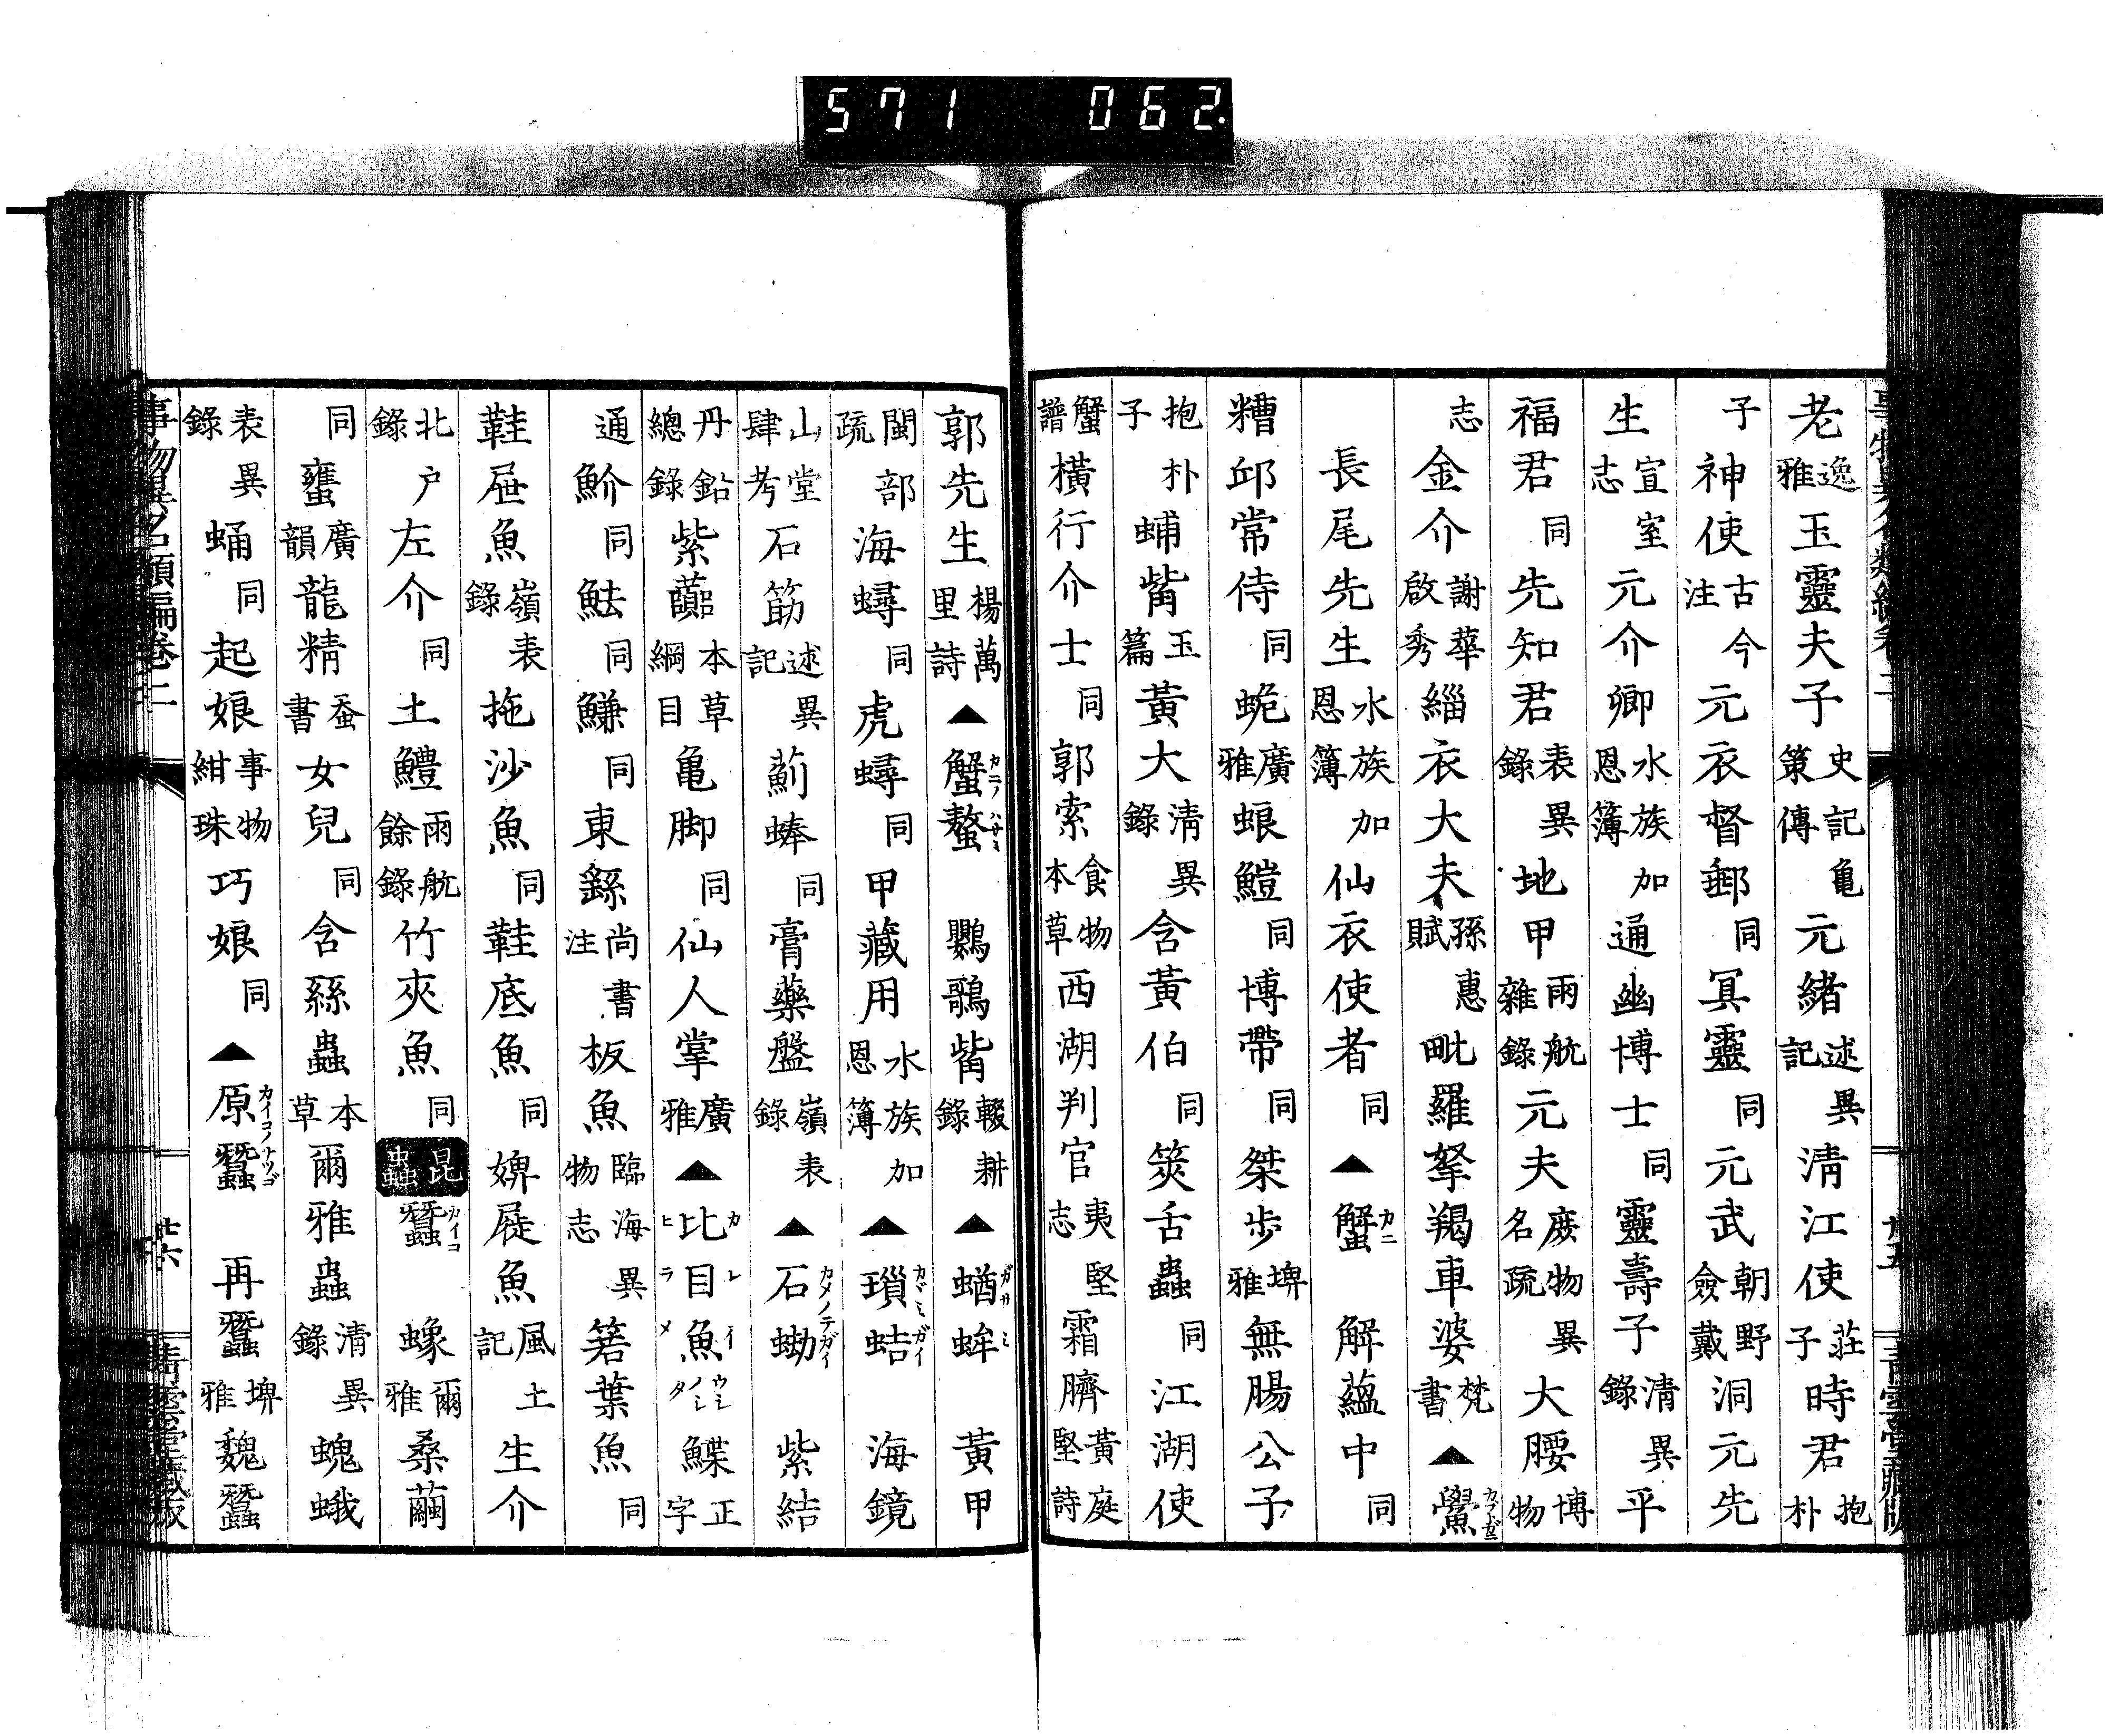 571 062
老逸雅玉靈夫子史記策傳亀元緒述異記清江使莊子時君抱朴
子神使古今注元衣督郵同冥靈同元武朝野僉戴洞元先
生宣室志元介卿水族加恩簿通幽博士同靈壽子清異錄平
福君同先知君表異錄地甲雨航雜錄元夫庶物異名疏大腰博物
志金介謝華啟秀緇衣大夫孫惠賦毗羅拏羯車婆梵書▲鱟カブトガニ
長尾先生水族加恩簿仙衣使者同▲蟹カニ解蘊中同
糟邱常侍同蛫廣雅蜋鱧同博帶同桀步埤雅無腸公子
抱朴子蜅觜玉篇黃大清異錄含黃伯同筴舌蟲同江湖使
蟹譜橫行介士同郭索食物本草西湖判官夷堅志霜臍黃庭堅詩
郭先生楊萬里詩▲蟹螯カニノハサミ鸚鵡觜輟耕錄▲蝤蛑ガザミ黃甲
閩部疏海蟳同虎蟳同甲藏用水族加恩簿▲瑣蛣カヾミガイ海鏡
山堂肆考石筯述異記薊蜯同膏藥盤嶺表錄▲石蜐カメノテガイ紫結
丹鉛總錄紫蘁本草綱目亀脚同仙人掌廣雅▲比目魚カレイヒラメウシノシタ鰈正字
通魪同魼同鰜同東鰩尚書注板魚臨海異物志箬葉魚同
鞋屉魚嶺表錄拖沙魚同鞋底魚同婢屣魚風土記生介
北戶錄左介同土鱧雨航餘錄竹夾魚同昆蟲蠶カイコ蟓爾雅桑繭
同𧒒廣韻龍精蚕書女兒同含絲蟲本草爾雅蟲清異錄螝蛾
表異錄蛹同起娘事物紺珠巧娘同▲原蠶カイコノナツゴ再蠶埤雅魏蠶
事物異名類編卷二 廿六 青雲堂藏版